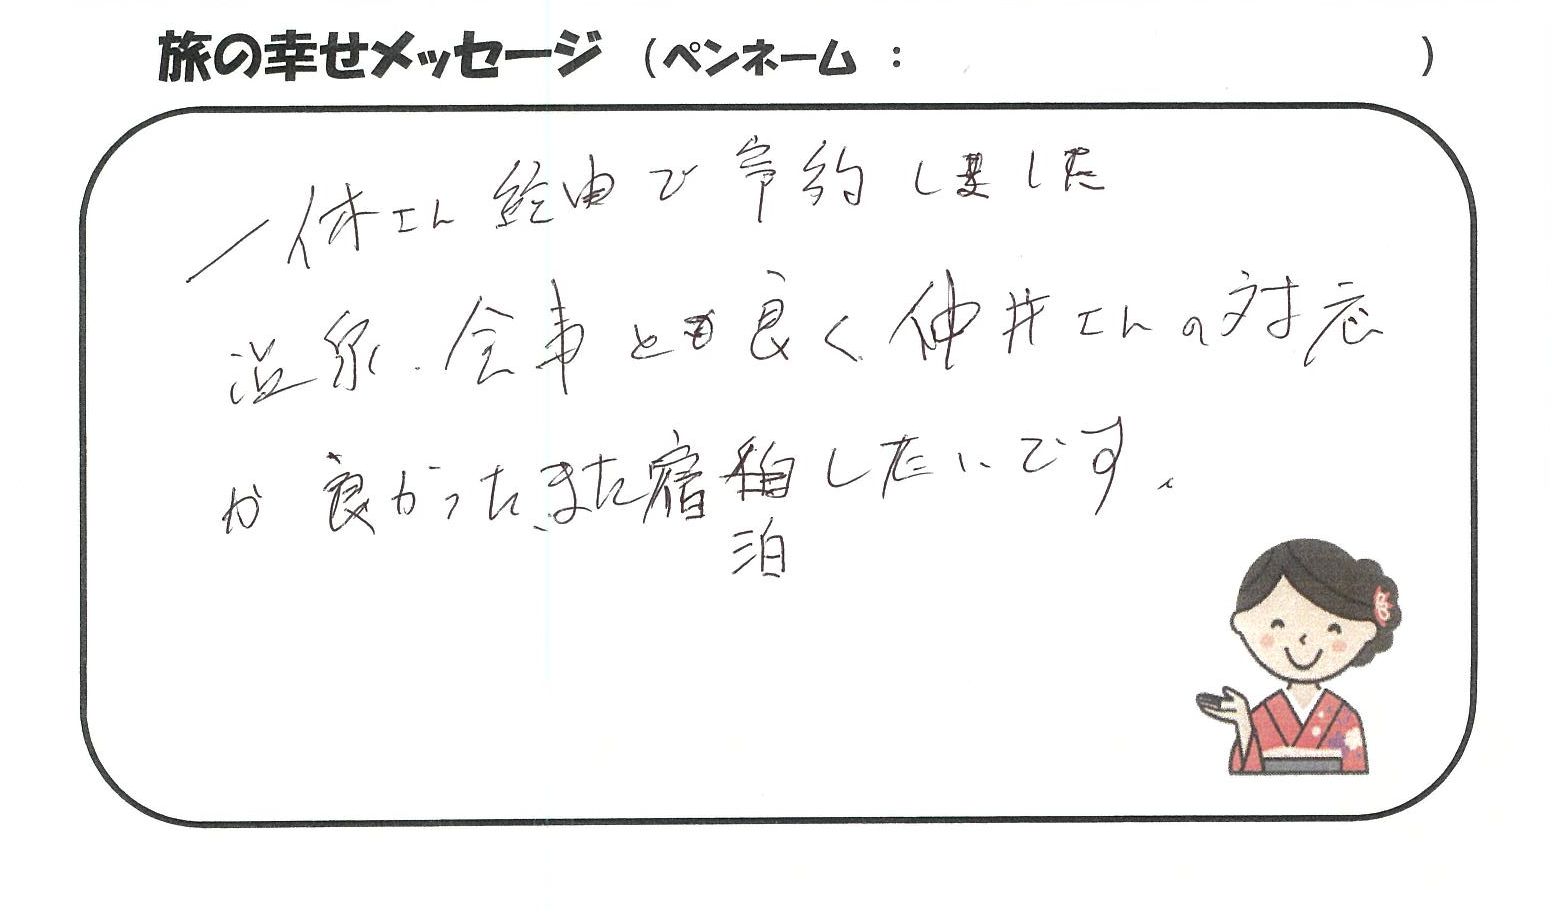 旅の幸せメッセージ (ペンネーム : )
一休さん経由で予約しました
温泉.食事とも良く仲井さんの対応
が良かった、また宿泊したいです。